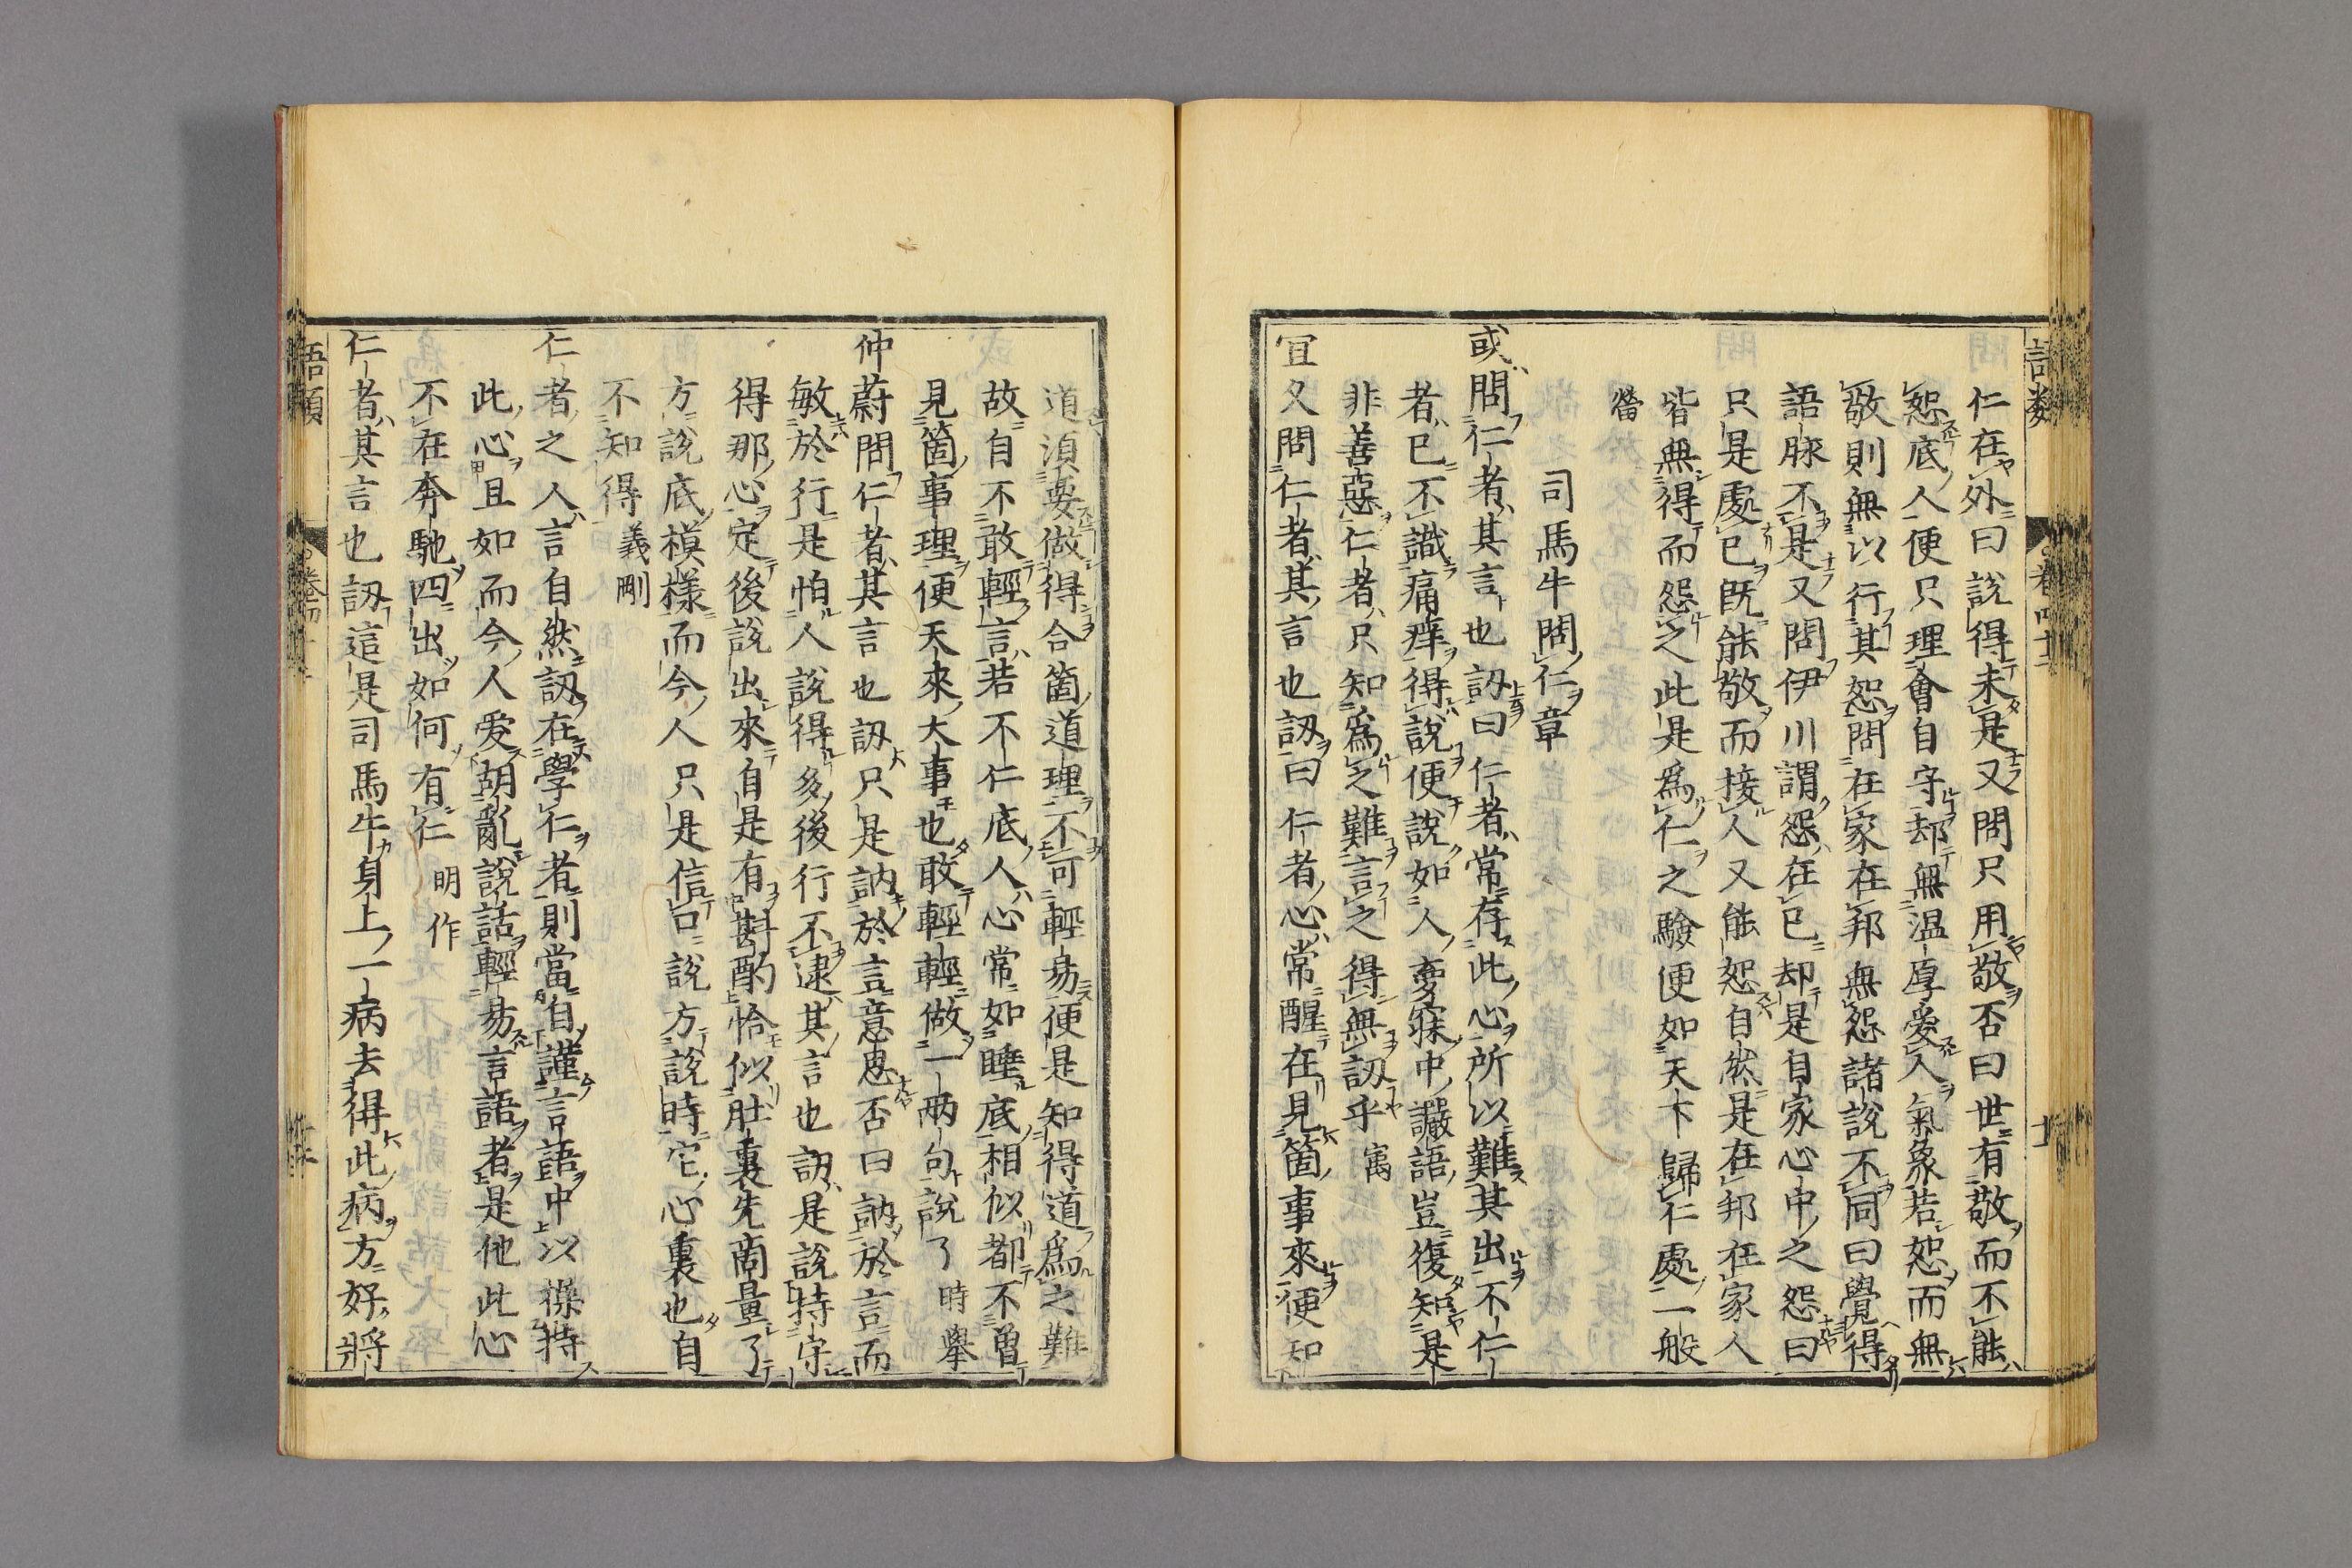 仁在外曰說得未是又問只用敬否曰世有敬而不能
恕底人便只理會自守却無温厚愛人氣象若恕而無
敬則無以行其恕問在家在邦無怨諸說不同曰覺得
語脉不是又問伊川謂怨在已却是自家心中之怨曰
只是處已既能敬而接人又能恕自然是在邦在家人
皆無得而怨之此是爲仁之驗便如天下歸仁處一般
㽦
司馬牛問仁章
或問仁者其言也訒曰仁者常存此心所以難其出不仁
者已不識痛痒得說便說如人夢寐中讝語豈復知是
非善惡仁者只知爲之難言之得無訒乎 㝢
宜又問仁者其言也訒曰仁者心常醒在見箇事來便知
道須要做得合箇道理不可輕易便是知得道爲之難
故自不敢輕言若不仁底人心常如睡底相似都不曾
見箇事理便天來大事也敢輕輕做一兩句說了 時舉
仲蔚問仁者其言也訒只是訥於言意思否曰訥於言而
敏於行是怕人說得多後行不逮其言也訒是說持守
得那心定後說出來自是有斟酌恰似肚裏先商量了
方說底模樣而今人只是信口說方說時它心裏也自
不知得 義剛
仁者之人言自然訒在學仁者則當自謹言語中以操持
此心且如而今人愛胡亂說話輕易言語者是他此心
不在奔馳四出如何有仁 明作
仁者其言也訒這是司馬牛身上一病去得此病方好將
語類